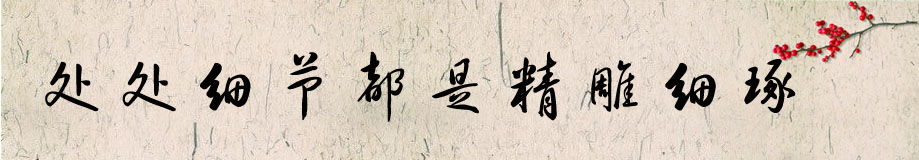 处处细节都是精雕细琢